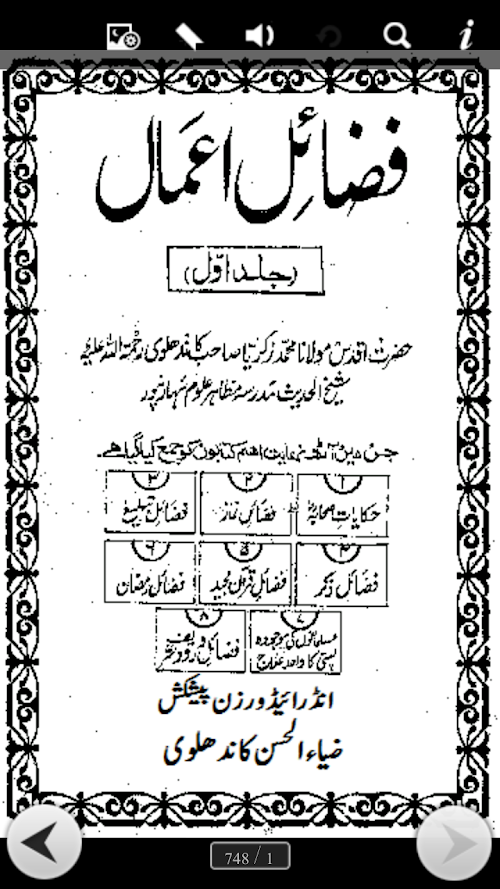 فضائل اعمال
(جلد اوّل)
حضرت اقدس مولانا محمد زکریا صاحب کاندھلوی رحمۃ اللہ علیہ
شیخ الحدیث مدرسہ مظاہر علوم سہارنپور
جس میں آٹھ نہایت اہم کتابوں کو جمع کیا گیا ہے۔
۱ ۲ ۳
حکایات صحابہؓ فضائل نماز فضائل تبلیغ
۴ ۵ ۶
فضائل ذکر فضائل قرآن مجید فضائل رمضان
۷ ۸
مسلمانوں کی موجودہ پستی کا واحد علاج فضائل درود شریف
انڈرائیڈ ورزن پیشکش
ضیاء الحسن کاندھلوی
748 / 1